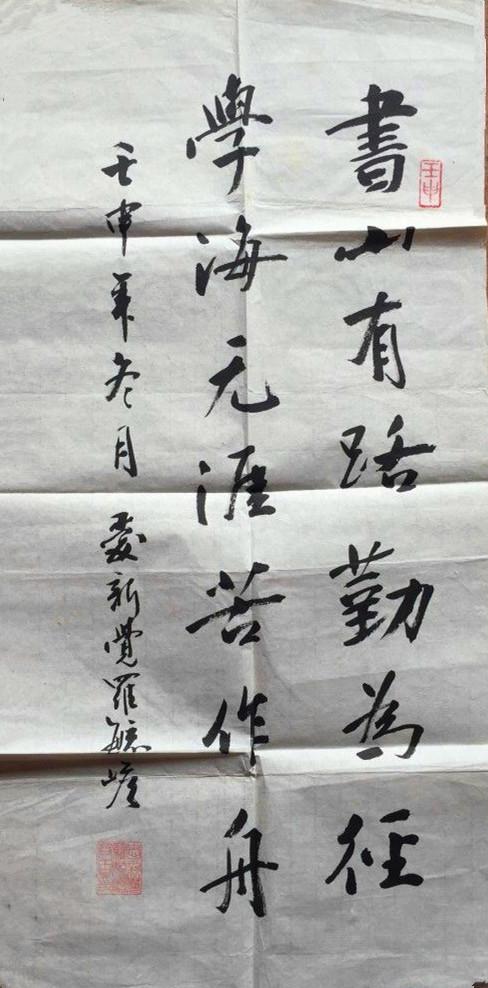 書山有路勤為徑
學海无涯苦作舟
壬申年冬月 愛新覺羅毓嶦
壬申